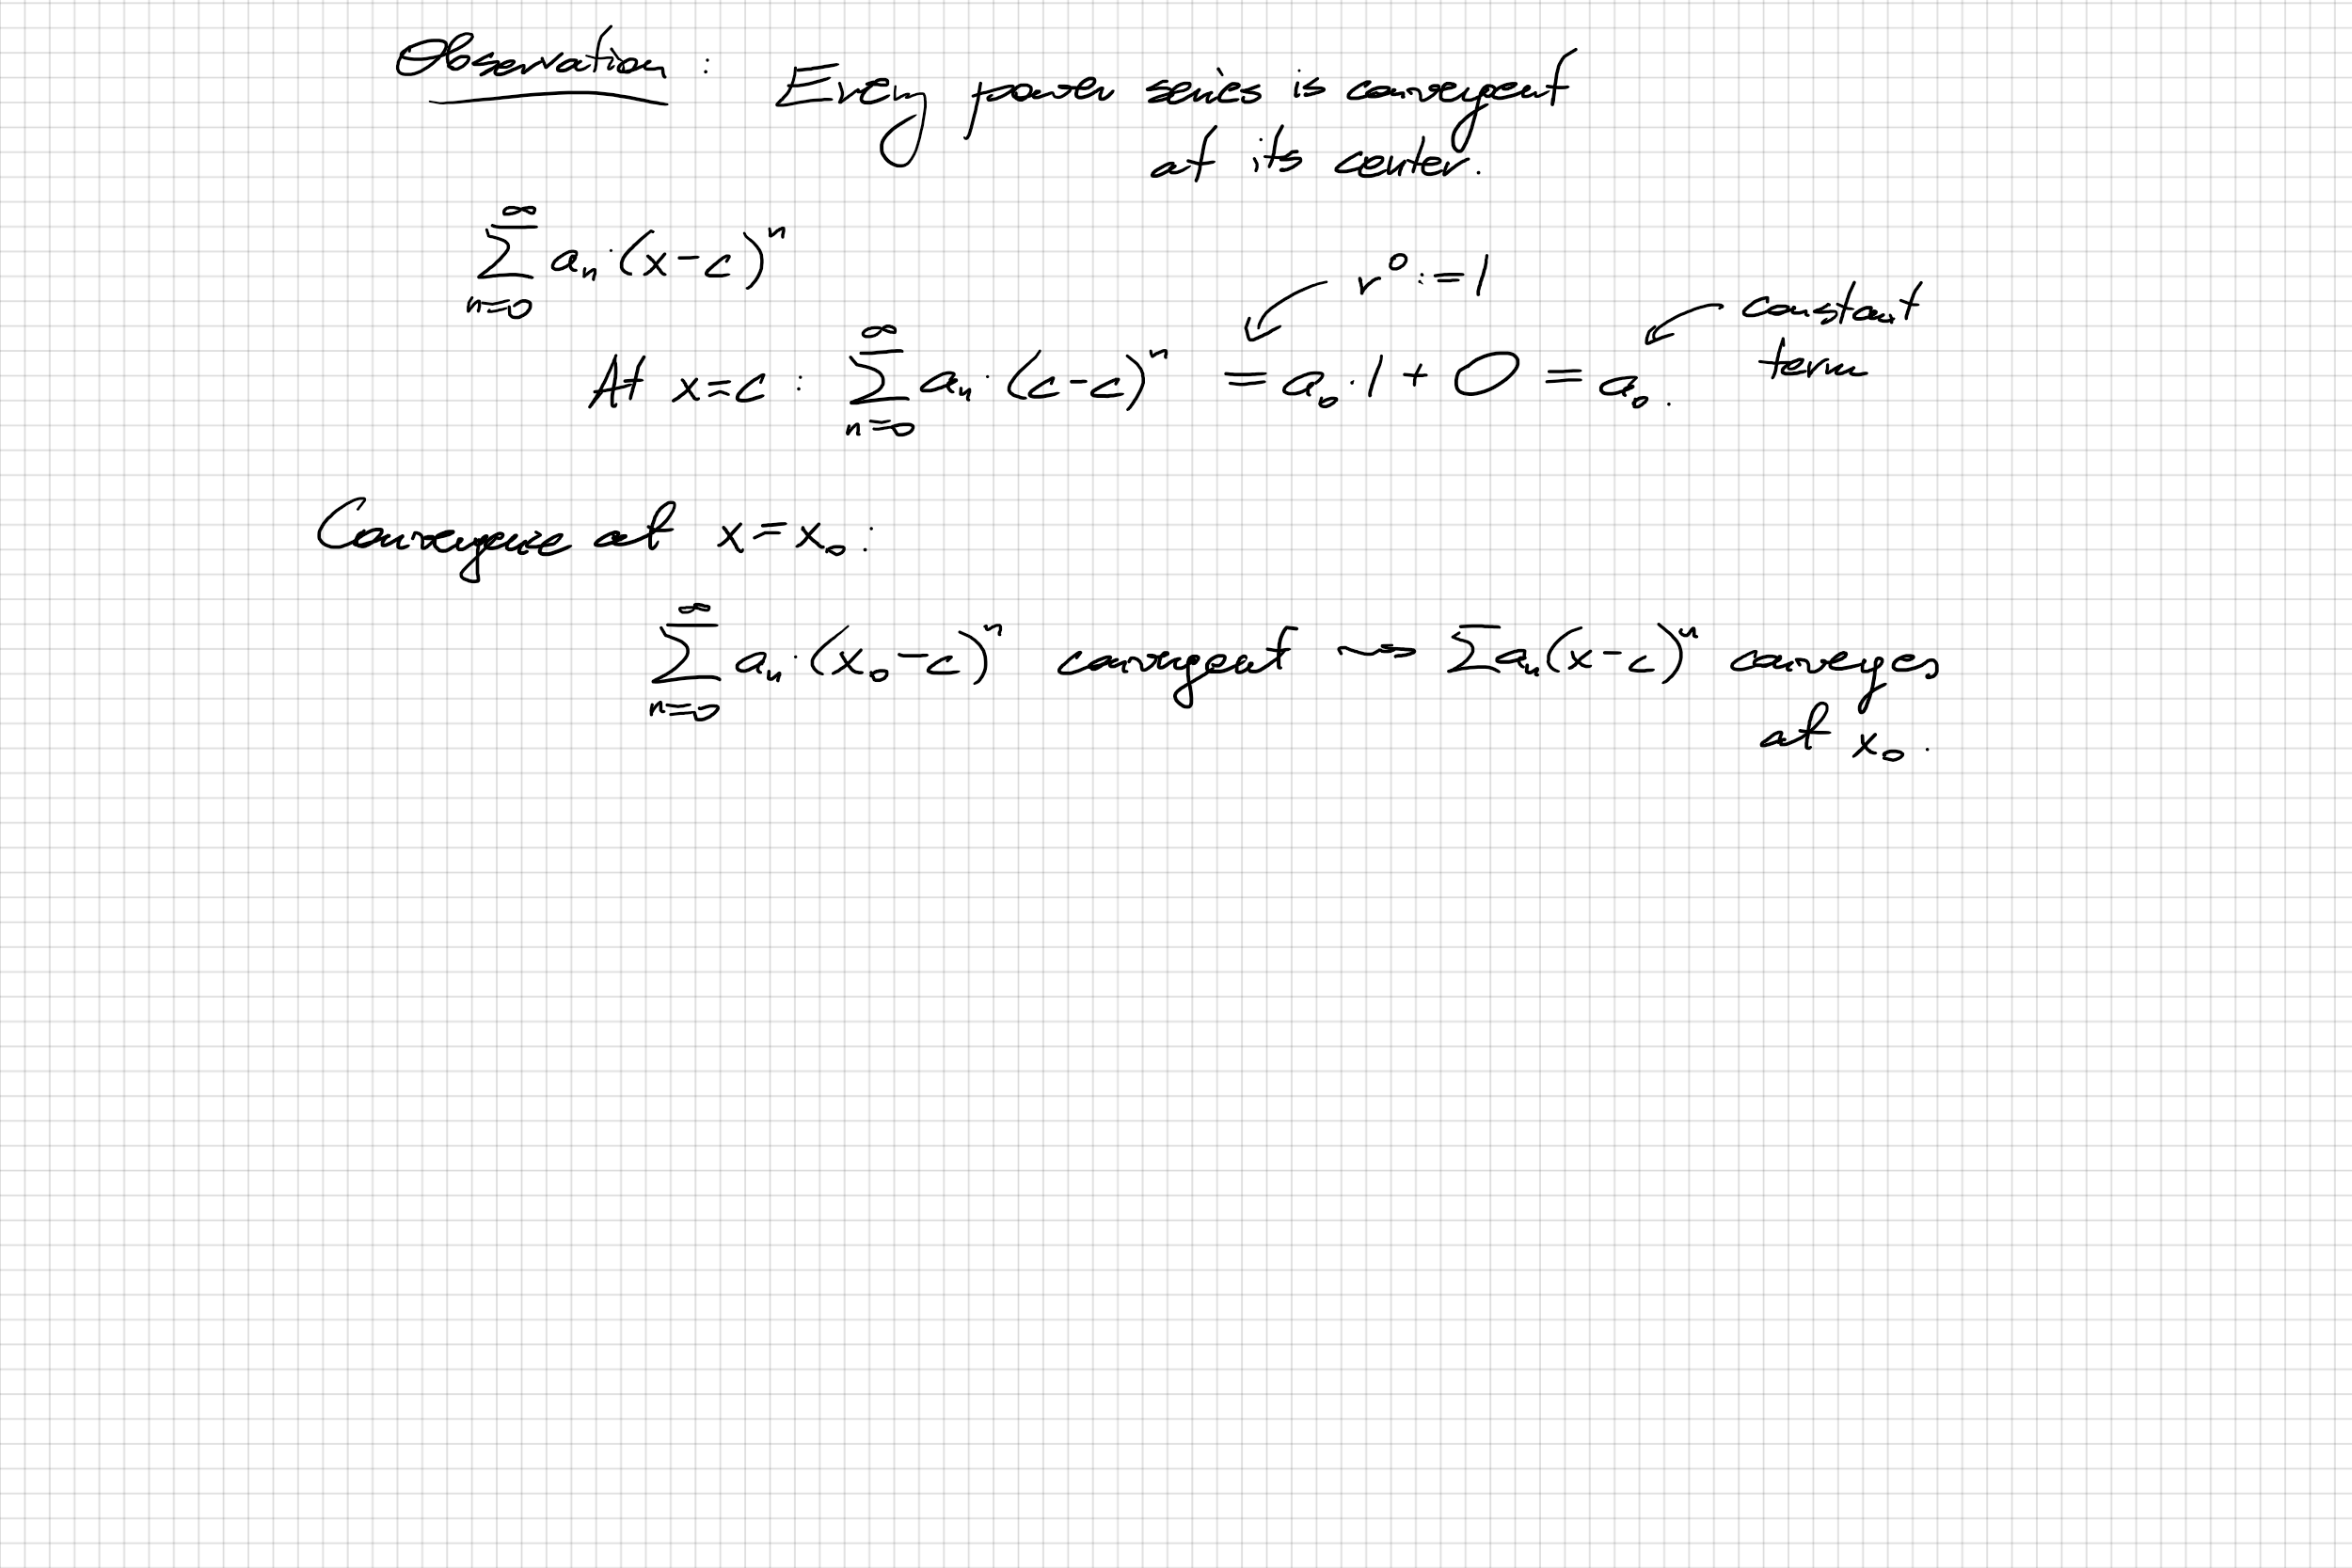 Observation: Every power series is convergent
at its center.
∑_{n=0}^{∞} a_n·(x-c)^n
r^0 := 1
constant
term
At x=c: ∑_{n=0}^{∞} a_n·(c-c)^n = a_0·1 + 0 = a_0.
Convergence at x=x_0:
∑_{n=0}^{∞} a_n·(x_0-c)^n convergent ⇝ ∑a_n(x-c)^n converges
at x_0.